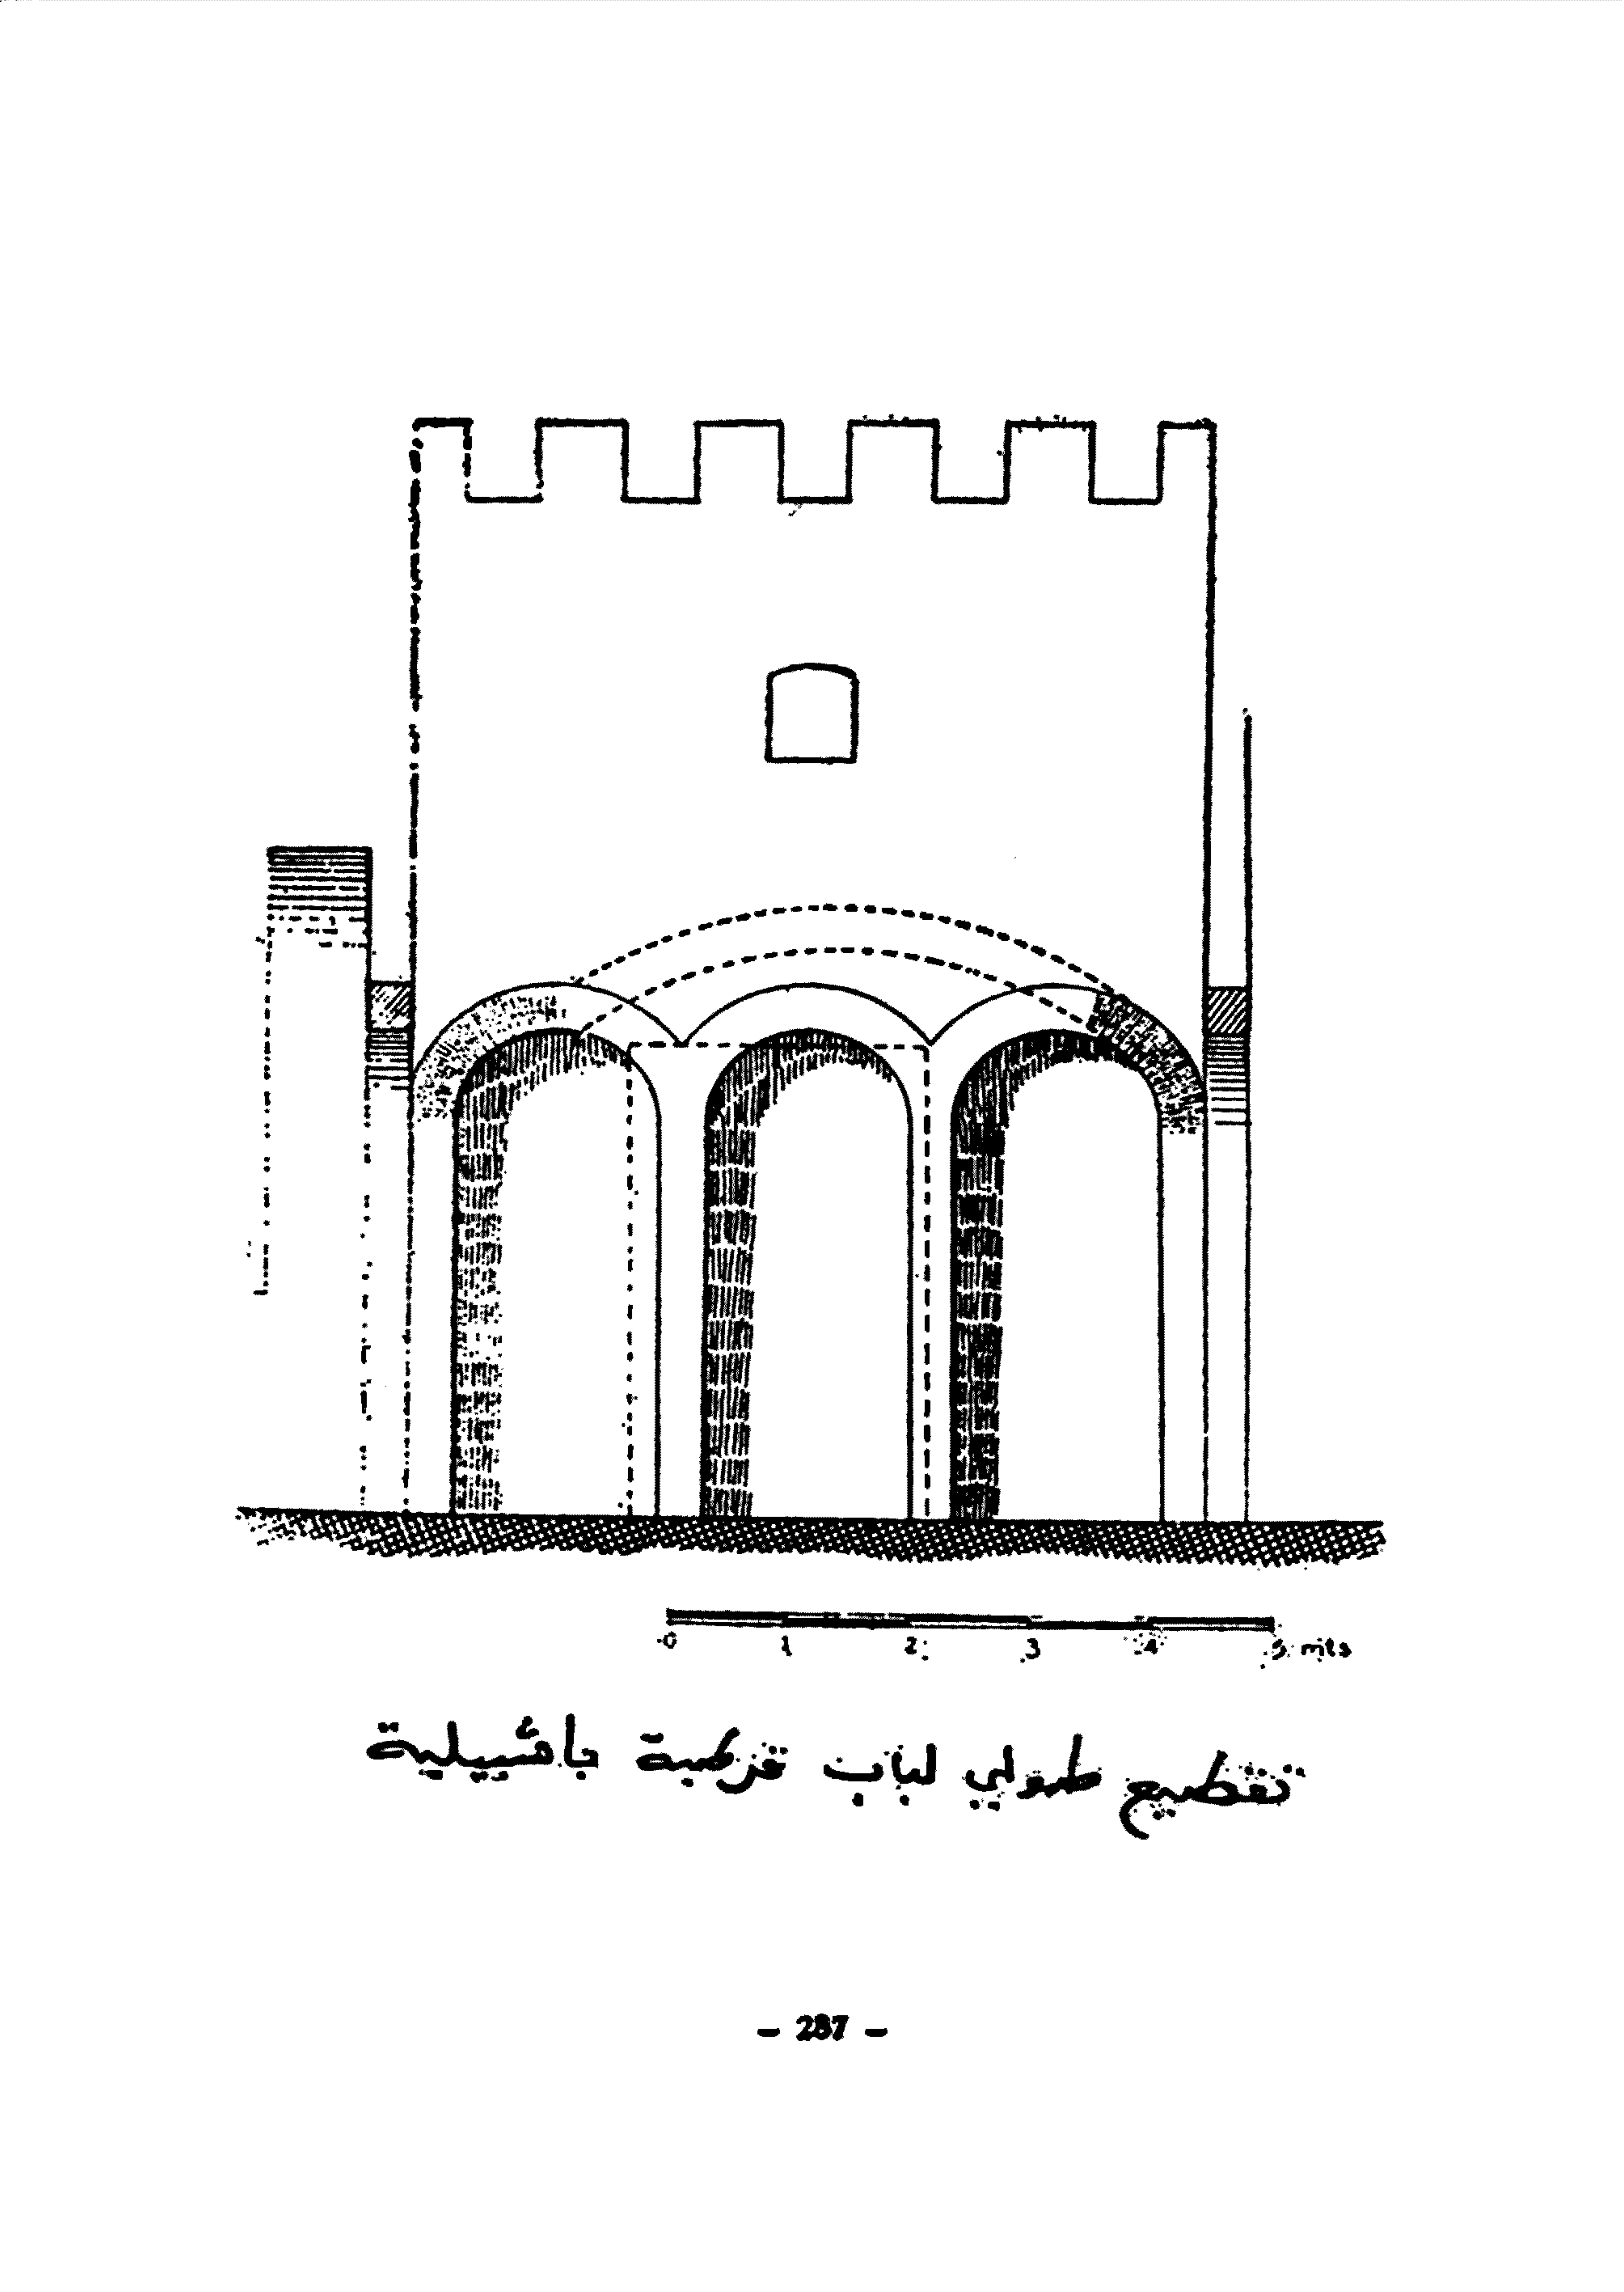 0 1 2 3 4 5 mts
تقطيع طولي لباب قرطبة بأشبيلية
- 287 -